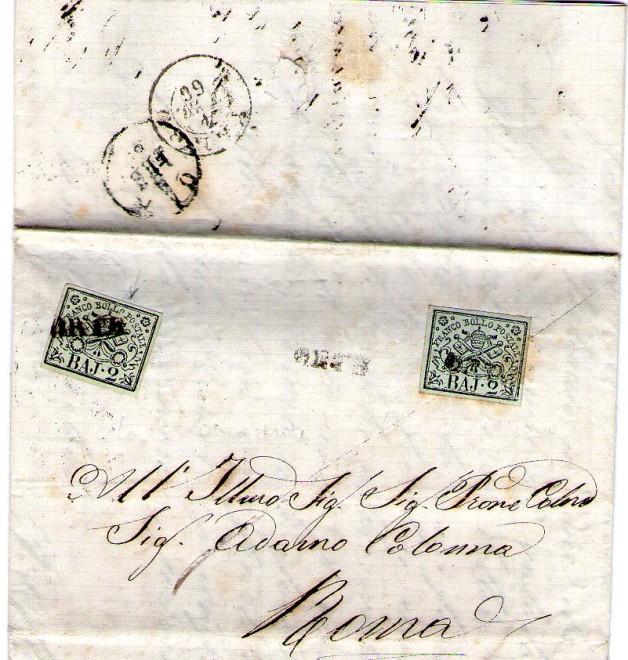 66
FRANCO BOLLO POSTALE
ORTE
BAJ. 2
ORTE
FRANCO BOLLO POSTALE
BAJ. 2
All' Illmo Sig. Sig. Prone Colmo
Sig. Adamo Colonna
Roma